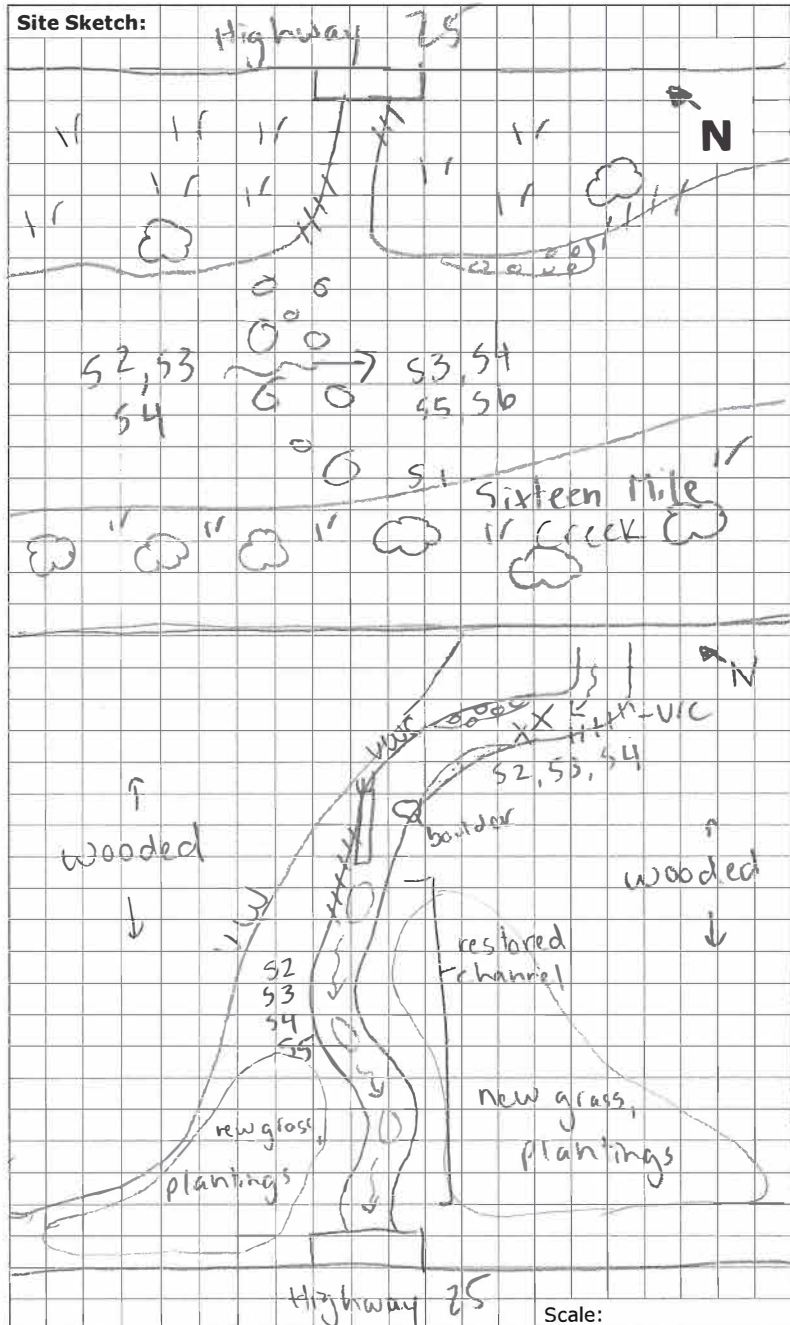 Site Sketch:
Highway 25
N
S2, S3
S4
S3, S4
S5, S6
S1
Sixteen Mile
Creek
N
VIC
S2, S3, S4
boulder
wooded
wooded
restored
channel
S2
S3
S4
S5
new grass,
plantings
new grass,
plantings
Highway 25
Scale: